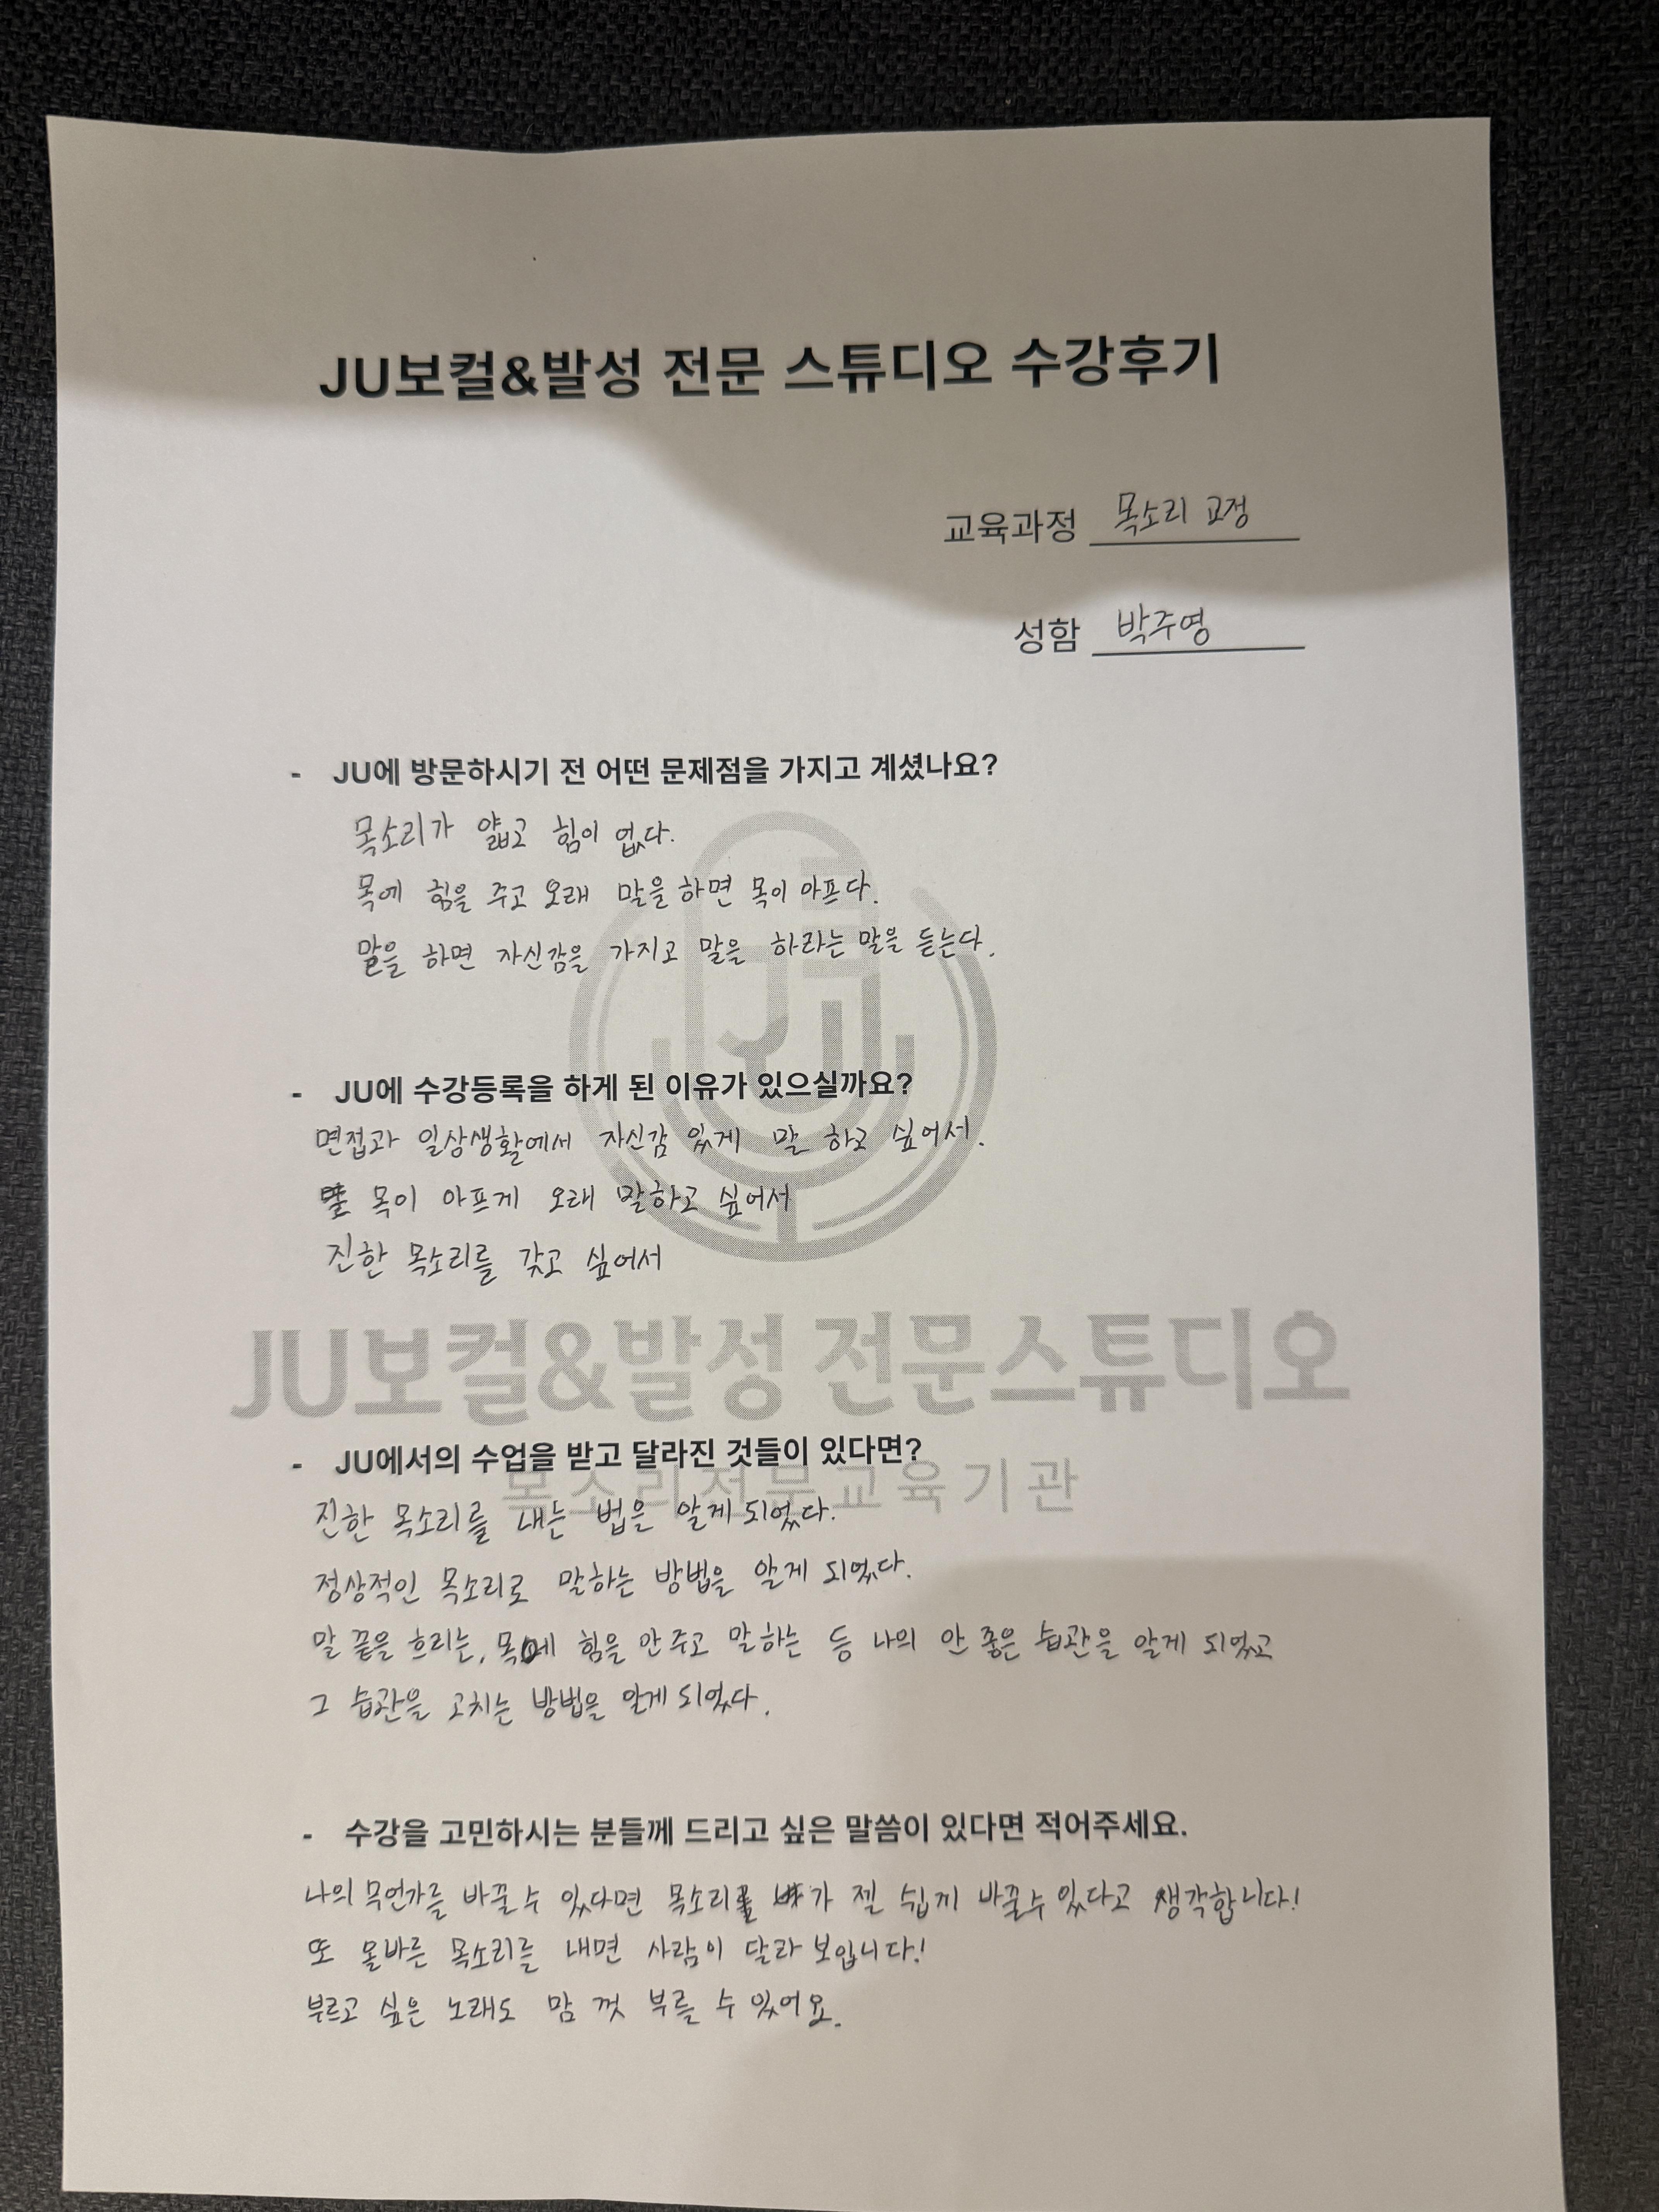 JU보컬&발성 전문 스튜디오 수강후기
교육과정 목소리 교정
성함 박주영
- JU에 방문하시기 전 어떤 문제점을 가지고 계셨나요?
목소리가 얇고 힘이 없다.
목에 힘을 주고 오래 말을 하면 목이 아프다.
말을 하면 자신감을 가지고 말을 하라는 말을 듣는다.
- JU에 수강등록을 하게 된 이유가 있으실까요?
면접과 일상생활에서 자신감 있게 말 하고 싶어서.
목이 아프게 오래 말하고 싶어서
진한 목소리를 갖고 싶어서
JU보컬&발성 전문스튜디오
- JU에서의 수업을 받고 달라진 것들이 있다면?
목소리전문교육기관
진한 목소리를 내는 법을 알게 되었다.
정상적인 목소리로 말하는 방법을 알게 되었다.
말 끝을 흐리는, 목에 힘을 안주고 말하는 등 나의 안 좋은 습관을 알게 되었고
그 습관을 고치는 방법을 알게 되었다.
- 수강을 고민하시는 분들께 드리고 싶은 말씀이 있다면 적어주세요.
나의 무언가를 바꿀 수 있다면 목소리가 젤 쉽게 바꿀 수 있다고 생각합니다!
또 올바른 목소리를 내면 사람이 달라 보입니다!
부르고 싶은 노래도 맘 껏 부를 수 있어요.